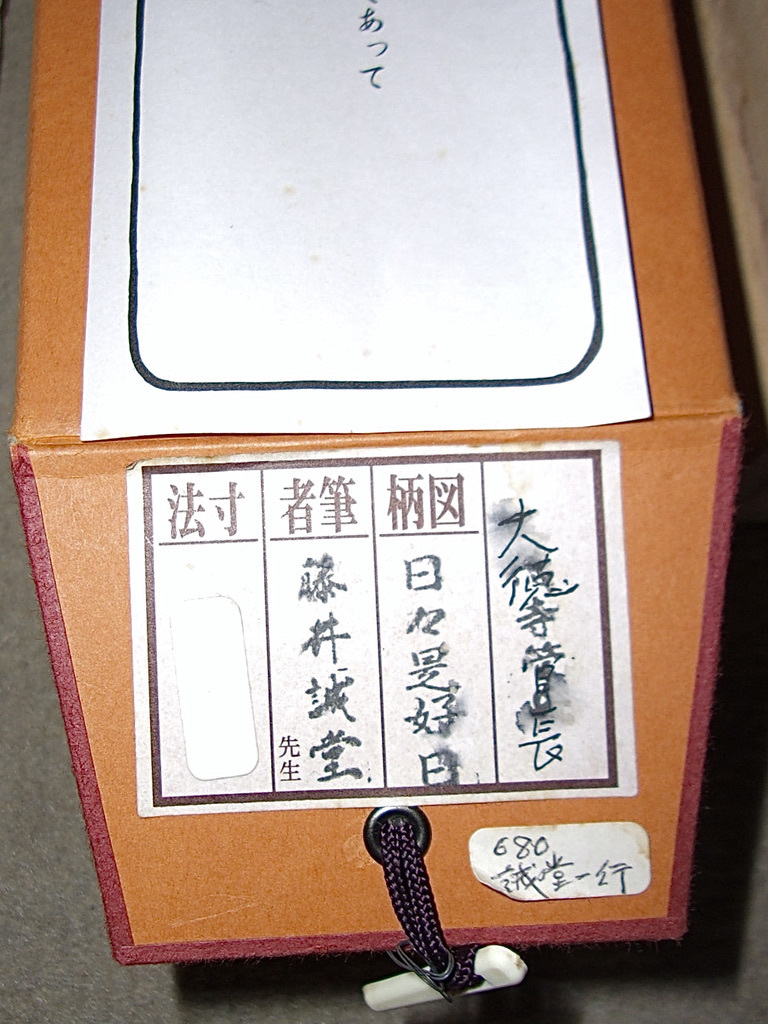 あって
大徳寺管長
図柄
日々是好日
筆者
藤井誡堂
先生
寸法
680
誡堂一行